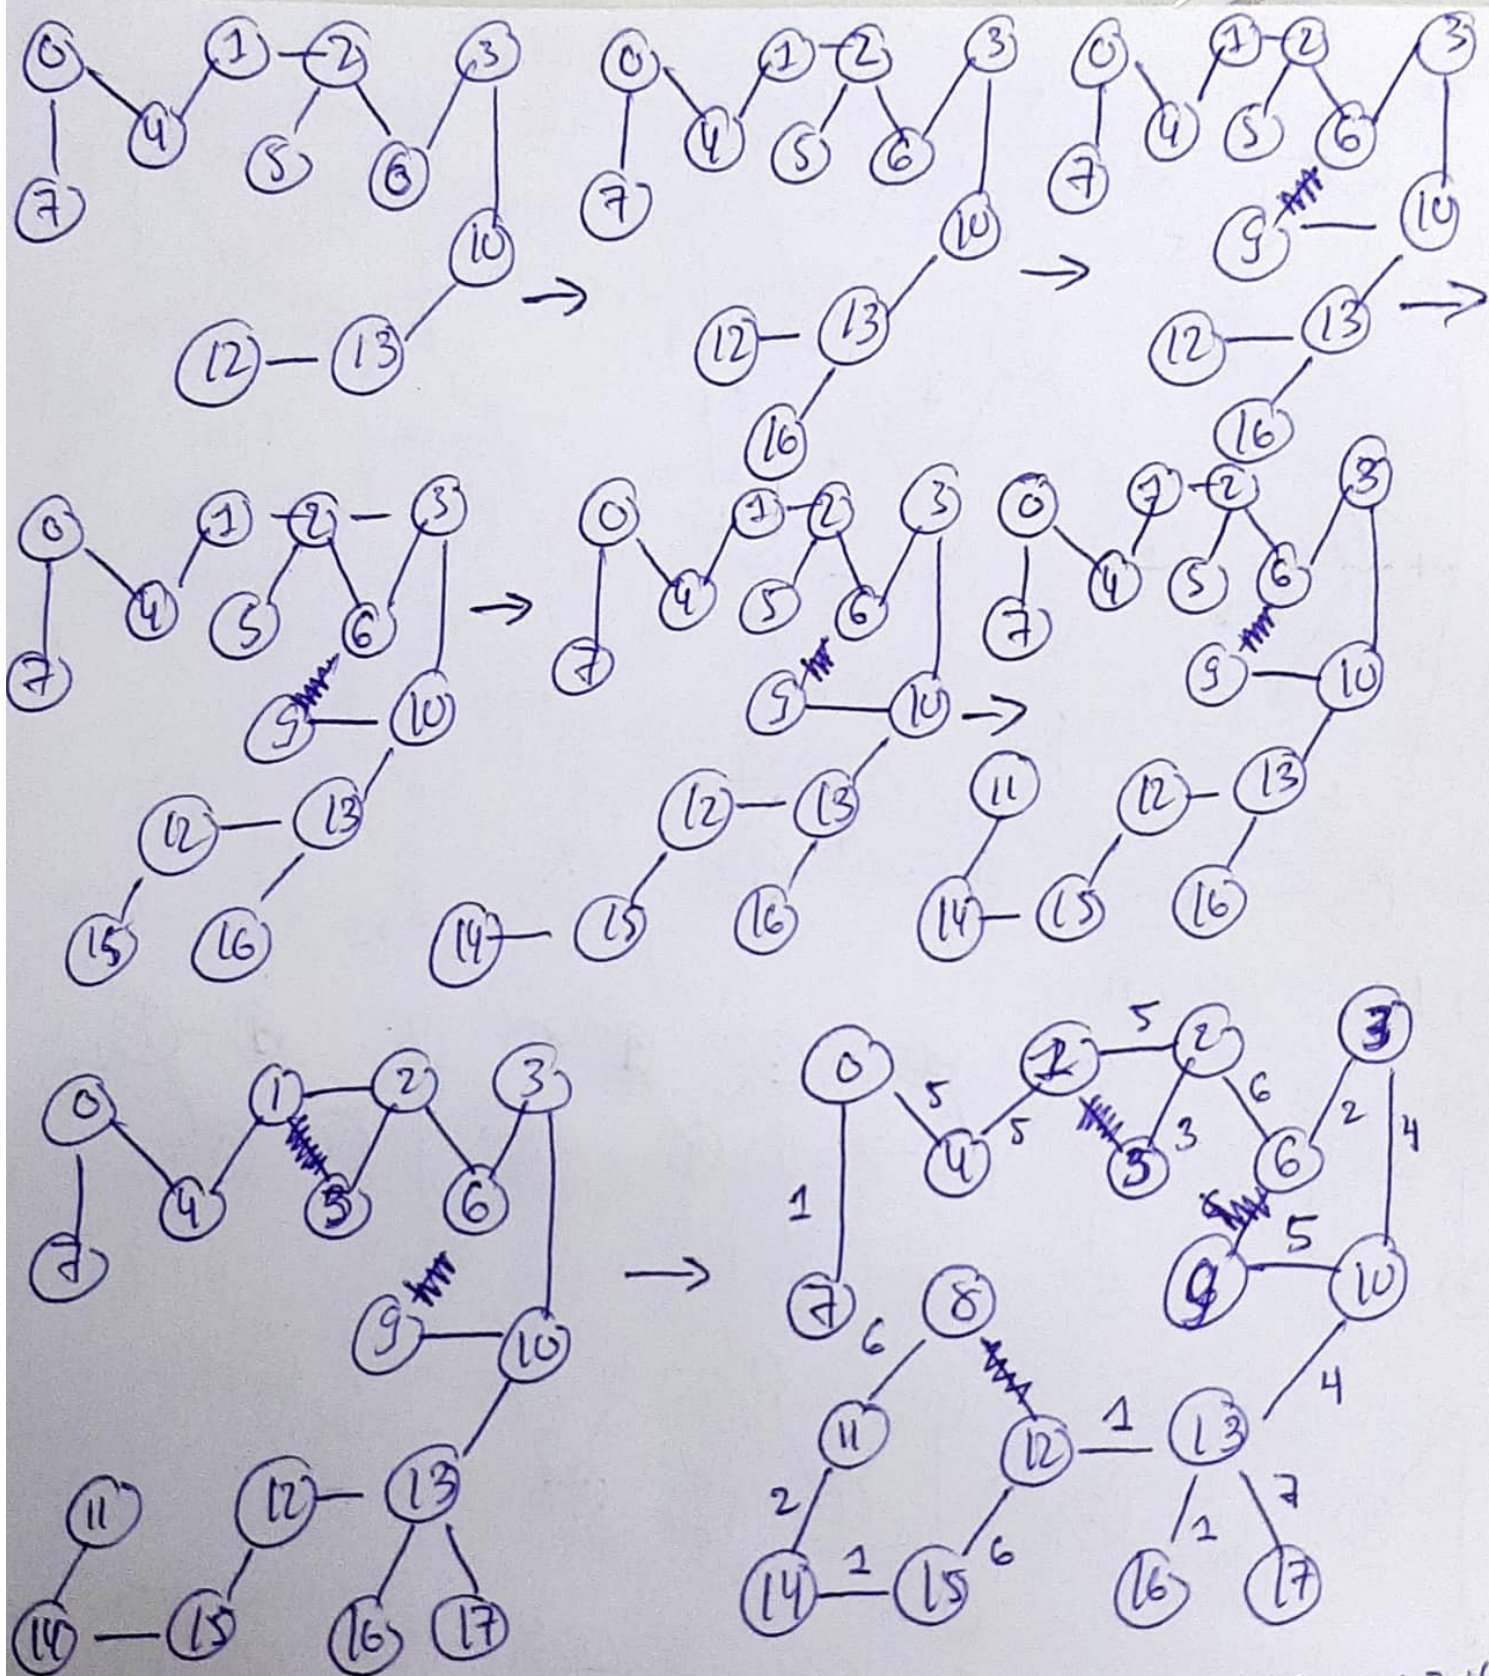 0 1 2 3
4 5 6
7
10
12 13
0 1 2 3
4 5 6
7
10
12 13
16
0 1 2 3
4 5 6
7
9 10
12 13
16
0 1 2 3
4 5 6
7
9 10
12 13
15 16
0 1 2 3
4 5 6
7
9 10
12 13
14 15 16
0 1 2 3
4 5 6
7
9 10
11 12 13
14 15 16
0 1 2 3
4 5 6
7
9 10
11 12 13
14 15 16 17
0 1 5 2 3
5 5 6 2 4
4 5 3 6
1
5
7 8 9 10
6
4
11 12 1 13
2 1 6 1 7
14 15 16 17